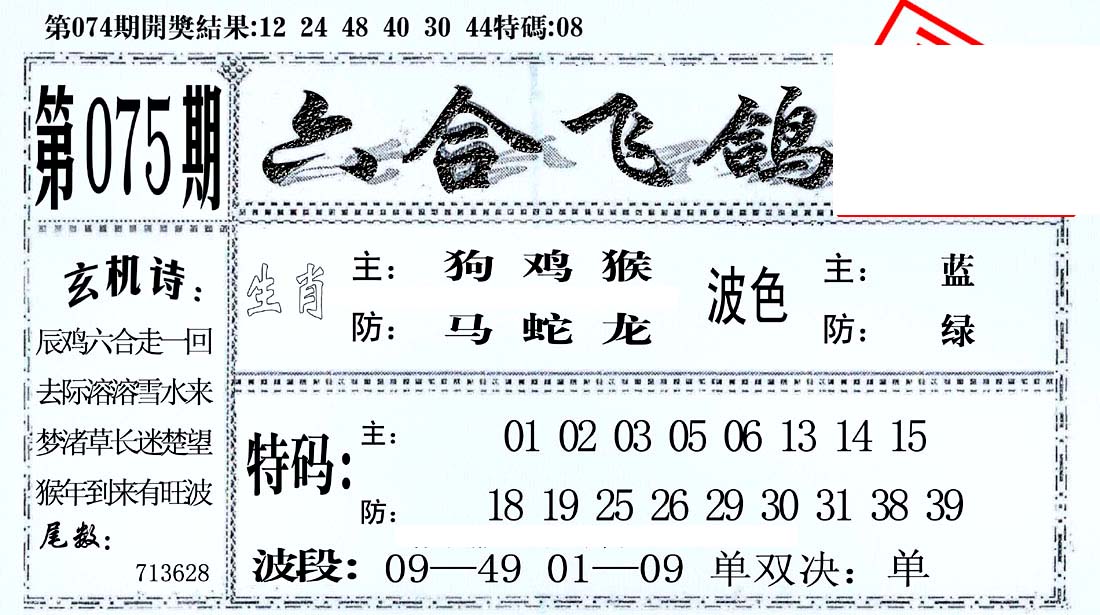 第074期開獎結果:12 24 48 40 30 44特碼:08
第075期
六合飞鸽
玄机诗：
辰鸡六合走一回
去际溶溶雪水来
梦渚草长迷楚望
猴年到来有旺波
尾数：
713628
生肖
主： 狗 鸡 猴
防： 马 蛇 龙
波色
主： 蓝
防： 绿
特码：
主： 01 02 03 05 06 13 14 15
防： 18 19 25 26 29 30 31 38 39
波段：09—49 01—09 单双决：单